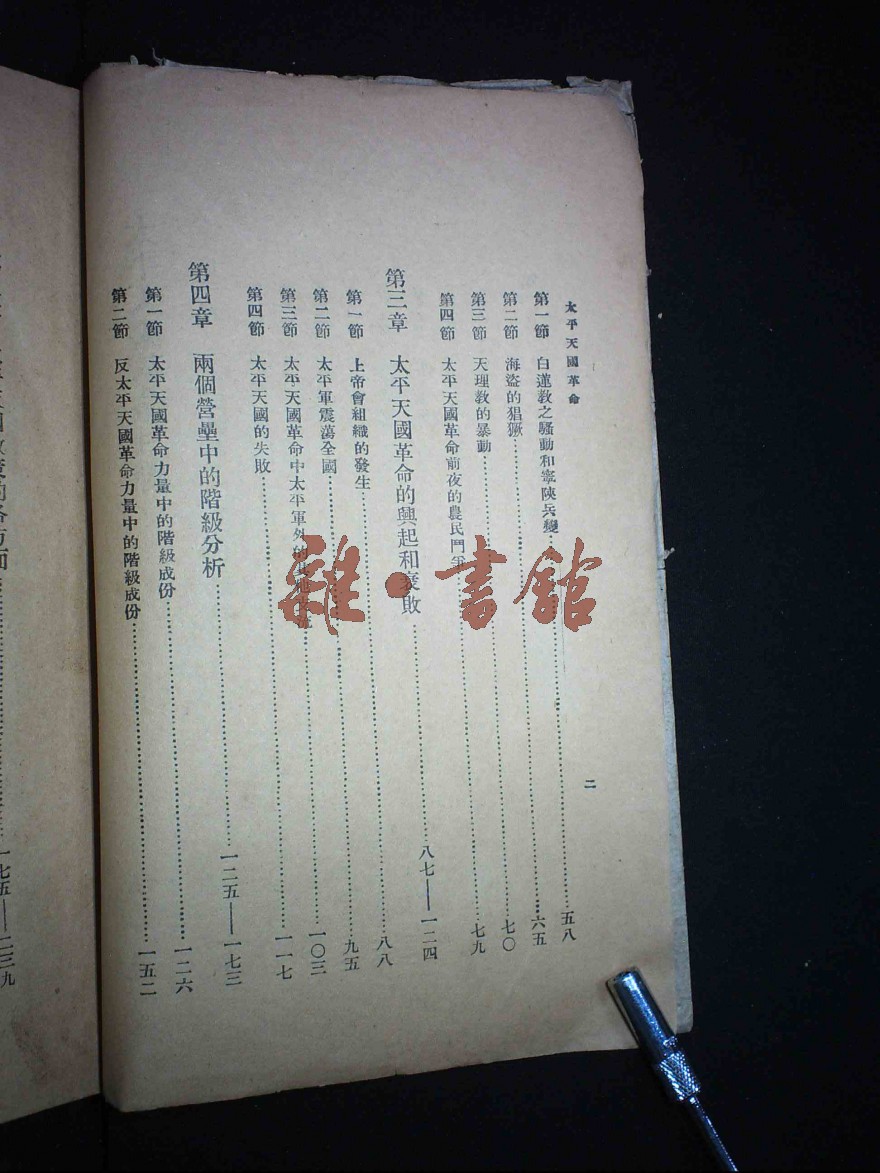 太平天國革命 二
第一節 白蓮教之騷動和寧陝兵變……五八
第二節 海盜的猖獗……六五
第三節 天理教的暴動……七〇
第四節 太平天國革命前夜的農民鬥爭……七九
第三章 太平天國革命的興起和衰敗……八七——一二四
第一節 上帝會組織的發生……八八
第二節 太平軍震蕩全國……九五
第三節 太平天國革命中太平軍外的……一〇三
第四節 太平天國的失敗……一一七
第四章 兩個營壘中的階級分析……一二五——一七三
第一節 太平天國革命力量中的階級成份……一二六
第二節 反太平天國革命力量中的階級成份……一五二
的各方面……一七五——二三九
雜·書館